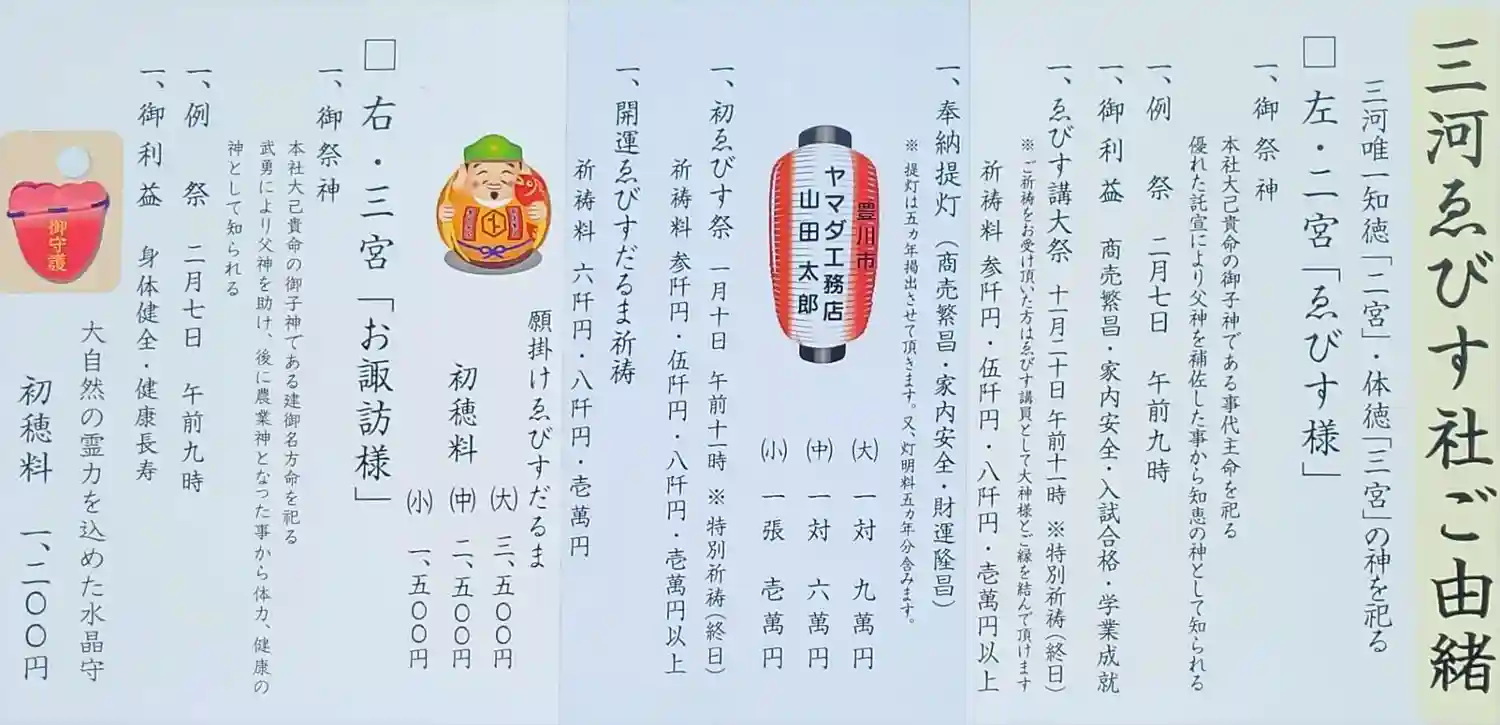 三河ゑびす社ご由緒
三河唯一知徳「二宮」・体徳「三宮」の神を祀る
□左・二宮「ゑびす様」
一、御祭神
本社大己貴命の御子神である事代主命を祀る
優れた託宣により父神を補佐した事から知恵の神として知られる
一、例　祭　二月七日　午前九時
一、御利益　商売繁昌・家内安全・入試合格・学業成就
一、ゑびす講大祭　十一月二十日 午前十一時 ※特別祈祷(終日)
※ご祈祷をお受け頂いた方はゑびす講員として大神様とご縁を結んで頂けます
祈祷料 参阡円・伍阡円・八阡円・壱萬円以上
一、奉納提灯（商売繁昌・家内安全・財運隆昌）
※ 提灯は五カ年掲出させて頂きます。又、灯明料五カ年分含みます。
豊川市
ヤマダ工務店
山田太郎
㈥ 一対 九萬円
㈥ 一対 六萬円
㈥ 一張 壱萬円
一、初ゑびす祭　一月十日　午前十一時 ※ 特別祈祷(終日)
祈祷料 参阡円・伍阡円・八阡円・壱萬円以上
一、開運ゑびすだるま祈祷
祈祷料 六阡円・八阡円・壱萬円
願掛けゑびすだるま
初穂料
(大) 三、五〇〇円
(中) 二、五〇〇円
(小) 一、五〇〇円
□右・三宮「お諏訪様」
一、御祭神
本社大己貴命の御子神である建御名方命を祀る
武勇により父神を助け、後に農業神となつた事から体力、健康の
神として知られる
一、例　祭　二月七日　午前九時
一、御利益　身体健全・健康長寿
御守護
大自然の霊力を込めた水晶守
初穂料　一、二〇〇円